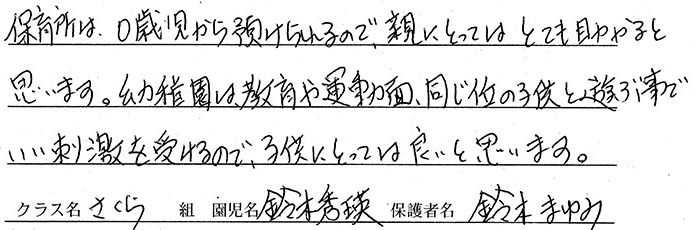 保育所は、0歳児から預けられるので、親にとってはとても助かると
思います。幼稚園は教育や運動面、同じ位の子供と遊ぶ事で
いい刺激を受けるので、子供にとっては良いと思います。
クラス名 さくら 組 園児名 鈴木秀瑛 保護者名 鈴木まゆみ